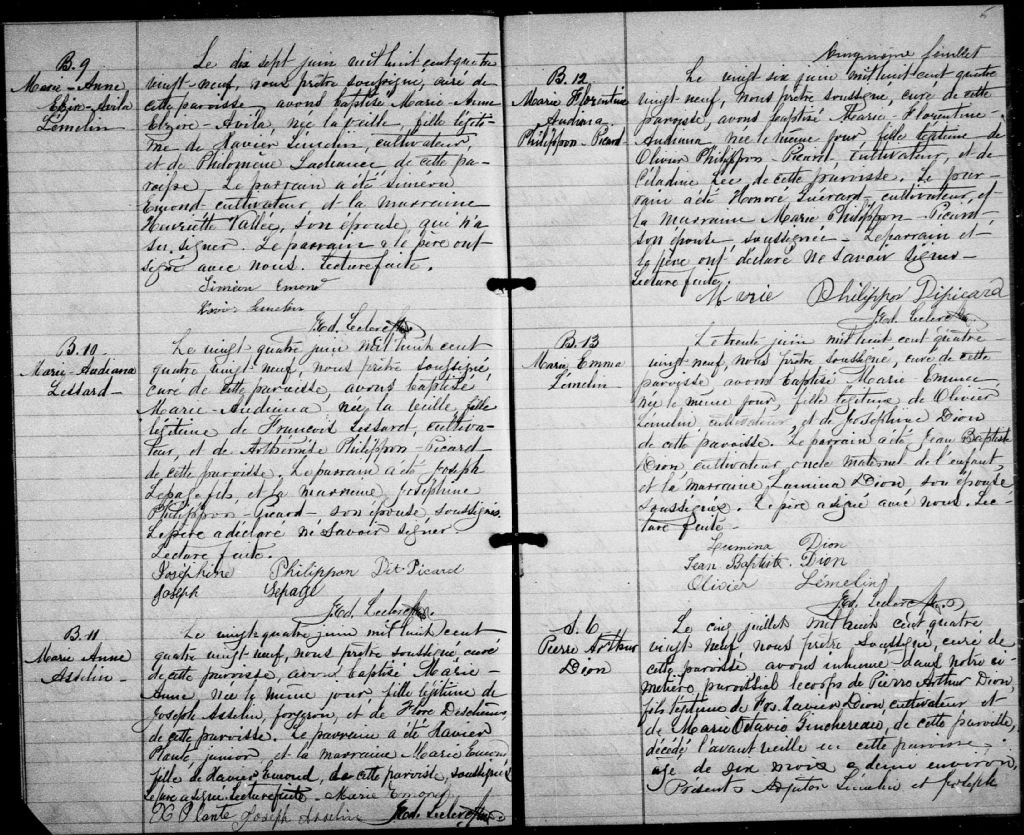 B. 9
Marie-Anne
Elzir-Avila
Lémelin
Le dix sept juin mil huit cent quatre
vingt-neuf, nous prêtre soussigné, curé de
cette paroisse avons baptisé Marie-Anne
Elzire-Avila, née la veille, fille légiti-
me de Xavier Lémelin, cultivateur,
et de Philomène Lachance de cette pa-
roisse. Le parrain a été Siméon
Emond cultivateur et la marraine
Henriette Vallée, son épouse, qui n'a
su signer. Le parrain & le père ont
signé avec nous. Lecture faite.
Siméon Emond
Xavier Lemelin
Ed. Leclerc Ptre
B. 10
Marie-Audiana
Lessard
Le vingt quatre juin mil huit cent
quatre vingt-neuf, nous prêtre soussigné,
curé de cette paroisse, avons baptisé
Marie-Audiana, née la veille, fille
légitime de François Lessard, cultiva-
teur, et de Arthémise Philippon-Picard
de cette paroisse. Le parrain a été Joseph
Lepage fils, et la marraine Joséphine
Philippon-Picard son épouse soussignés.
Le père a déclaré ne savoir signer.
Lecture faite.
Joséphine Philippon Dit Picard
Joseph Lepage
Ed. Leclerc Ptre.
B. 11
Marie Anne
Asselin
Le vingt quatre juin mil huit cent
quatre vingt-neuf, nous prêtre soussigné curé
de cette paroisse, avons baptisé Marie-
Anne née le même jour, fille légitime de
Joseph Asselin, forgeron, et de Flore Deschênes,
de cette paroisse. Le parrain a été Xavier
Plante junior, et la marraine Marie Emond
fille de Xavier Emond, de cette paroisse, soussignés
Le père a signé. Lecture faite. Marie Emond
FX Plante Joseph Asselin Ed. Leclerc Ptre
5
Cinquième feuillet
B. 12
Marie Florentine
Audiana
Philippon-Picard
Le vingt six juin mil huit cent quatre
vingt-neuf, nous prêtre soussigné, curé de cette
paroisse, avons baptisé Marie Florentine-
Audiana née le même jour, fille légitime de
Olivier Philippon-Picard, cultivateur, et de
Céladine Lee de cette paroisse. Le par-
rain a été Honoré Guérard cultivateur, et
la marraine Marie Philippon-Picard
son épouse soussignée. Le parrain et
le père ont déclaré ne savoir signer.
Lecture faite.
Marie Philippon Dipicard
Ed. Leclerc Ptre.
B. 13
Marie Emma
Lémelin
Le trente juin mil huit cent quatre-
vingt-neuf, nous prêtre soussigné, curé de cette
paroisse avons baptisé Marie Emma,
née le même jour, fille légitime de Olivier
Lémelin, cultivateur, et de Joséphine Dion
de cette paroisse. Le parrain a été Jean Baptiste
Dion, cultivateur, oncle maternel de l'enfant,
et la marraine Lumina Dion son épouse
soussignés. Le père a signé avec nous. Lec-
ture faite.
Lumina Dion
Jean Baptiste Dion
Olivier Lémeling
Ed. Leclerc Ptre
S. 6
Pierre Arthur
Dion
Le cinq juillet mil huit cent quatre
vingt neuf nous prêtre soussigné, curé de
cette paroisse avons inhumé dans notre ci-
metière paroissial le corps de Pierre Arthur Dion,
fils légitime de Frs. Xavier Dion cultivateur et
de Marie Octavie Ginchereau, de cette paroisse,
décédé l'avant veille en cette paroisse,
âgé de six mois & demie environ,
Présents Lémelin et Joseph